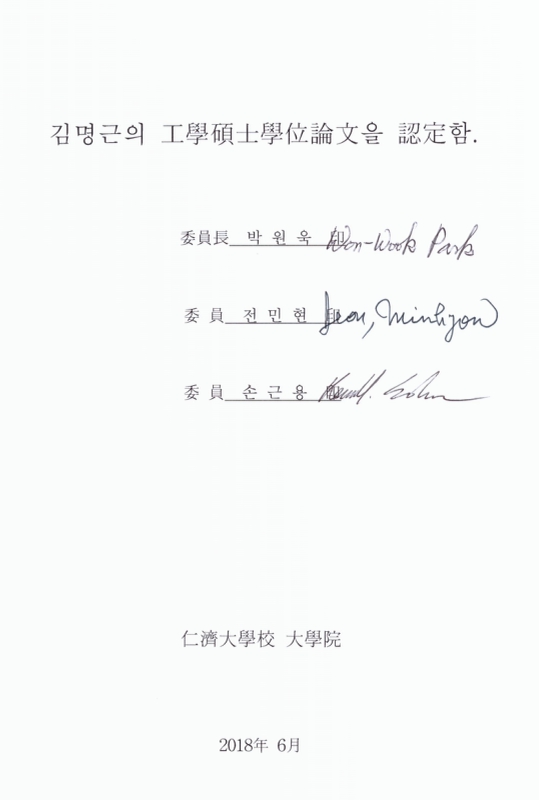 김명근의 工學碩士學位論文을 認定함.
委員長 박 원 욱 印 Won-Wook Park
委 員 전 민 현 印 Jeon, Minhyon
委 員 손 근 용 印
仁濟大學校 大學院
2018年 6月